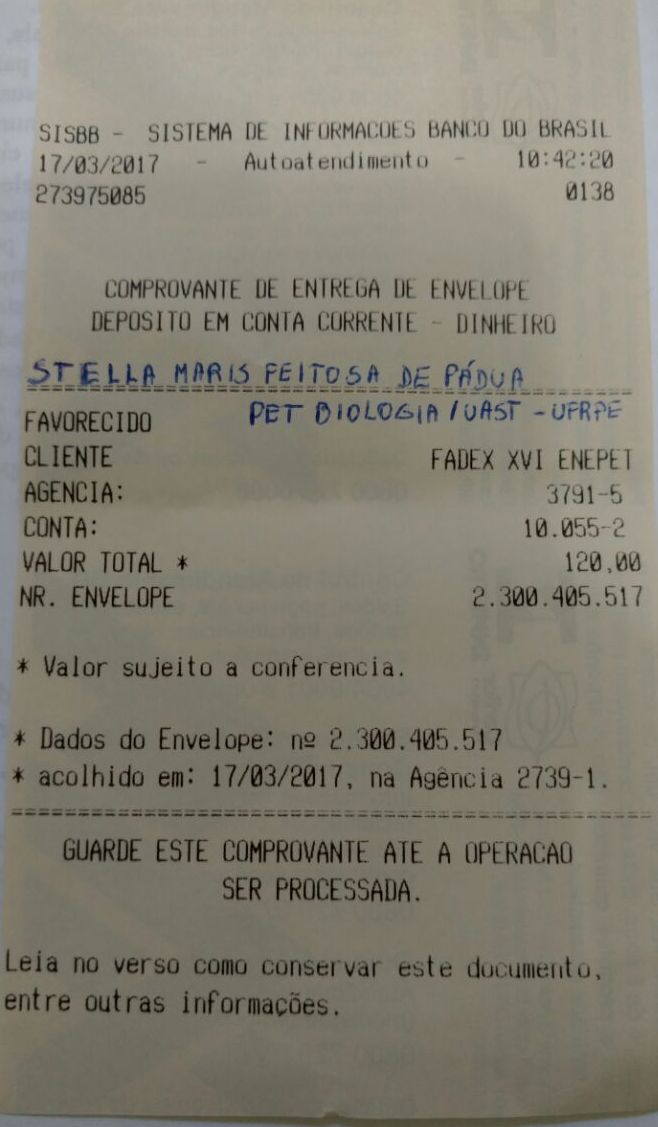 SISBB - SISTEMA DE INFORMACOES BANCO DO BRASIL
17/03/2017 - Autoatendimento - 10:42:20
273975085 0138
COMPROVANTE DE ENTREGA DE ENVELOPE
DEPOSITO EM CONTA CORRENTE - DINHEIRO
STELLA MARIS FEITOSA DE PÁDUA
PET BIOLOGIA/UAST - UFRPE
FAVORECIDO
CLIENTE FADEX XVI ENEPET
AGENCIA: 3791-5
CONTA: 10.055-2
VALOR TOTAL * 120,00
NR. ENVELOPE 2.300.405.517
* Valor sujeito a conferencia.
* Dados do Envelope: nº 2.300.405.517
* acolhido em: 17/03/2017, na Agência 2739-1.
GUARDE ESTE COMPROVANTE ATE A OPERACAO
SER PROCESSADA.
Leia no verso como conservar este documento,
entre outras informações.